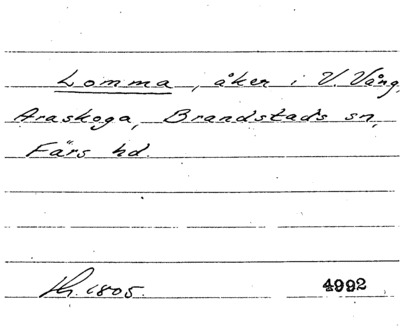 Lomma, åker i V. Vång,
Araskoga, Brandstads sn,
Färs hd.
Sk. 1805.
4992